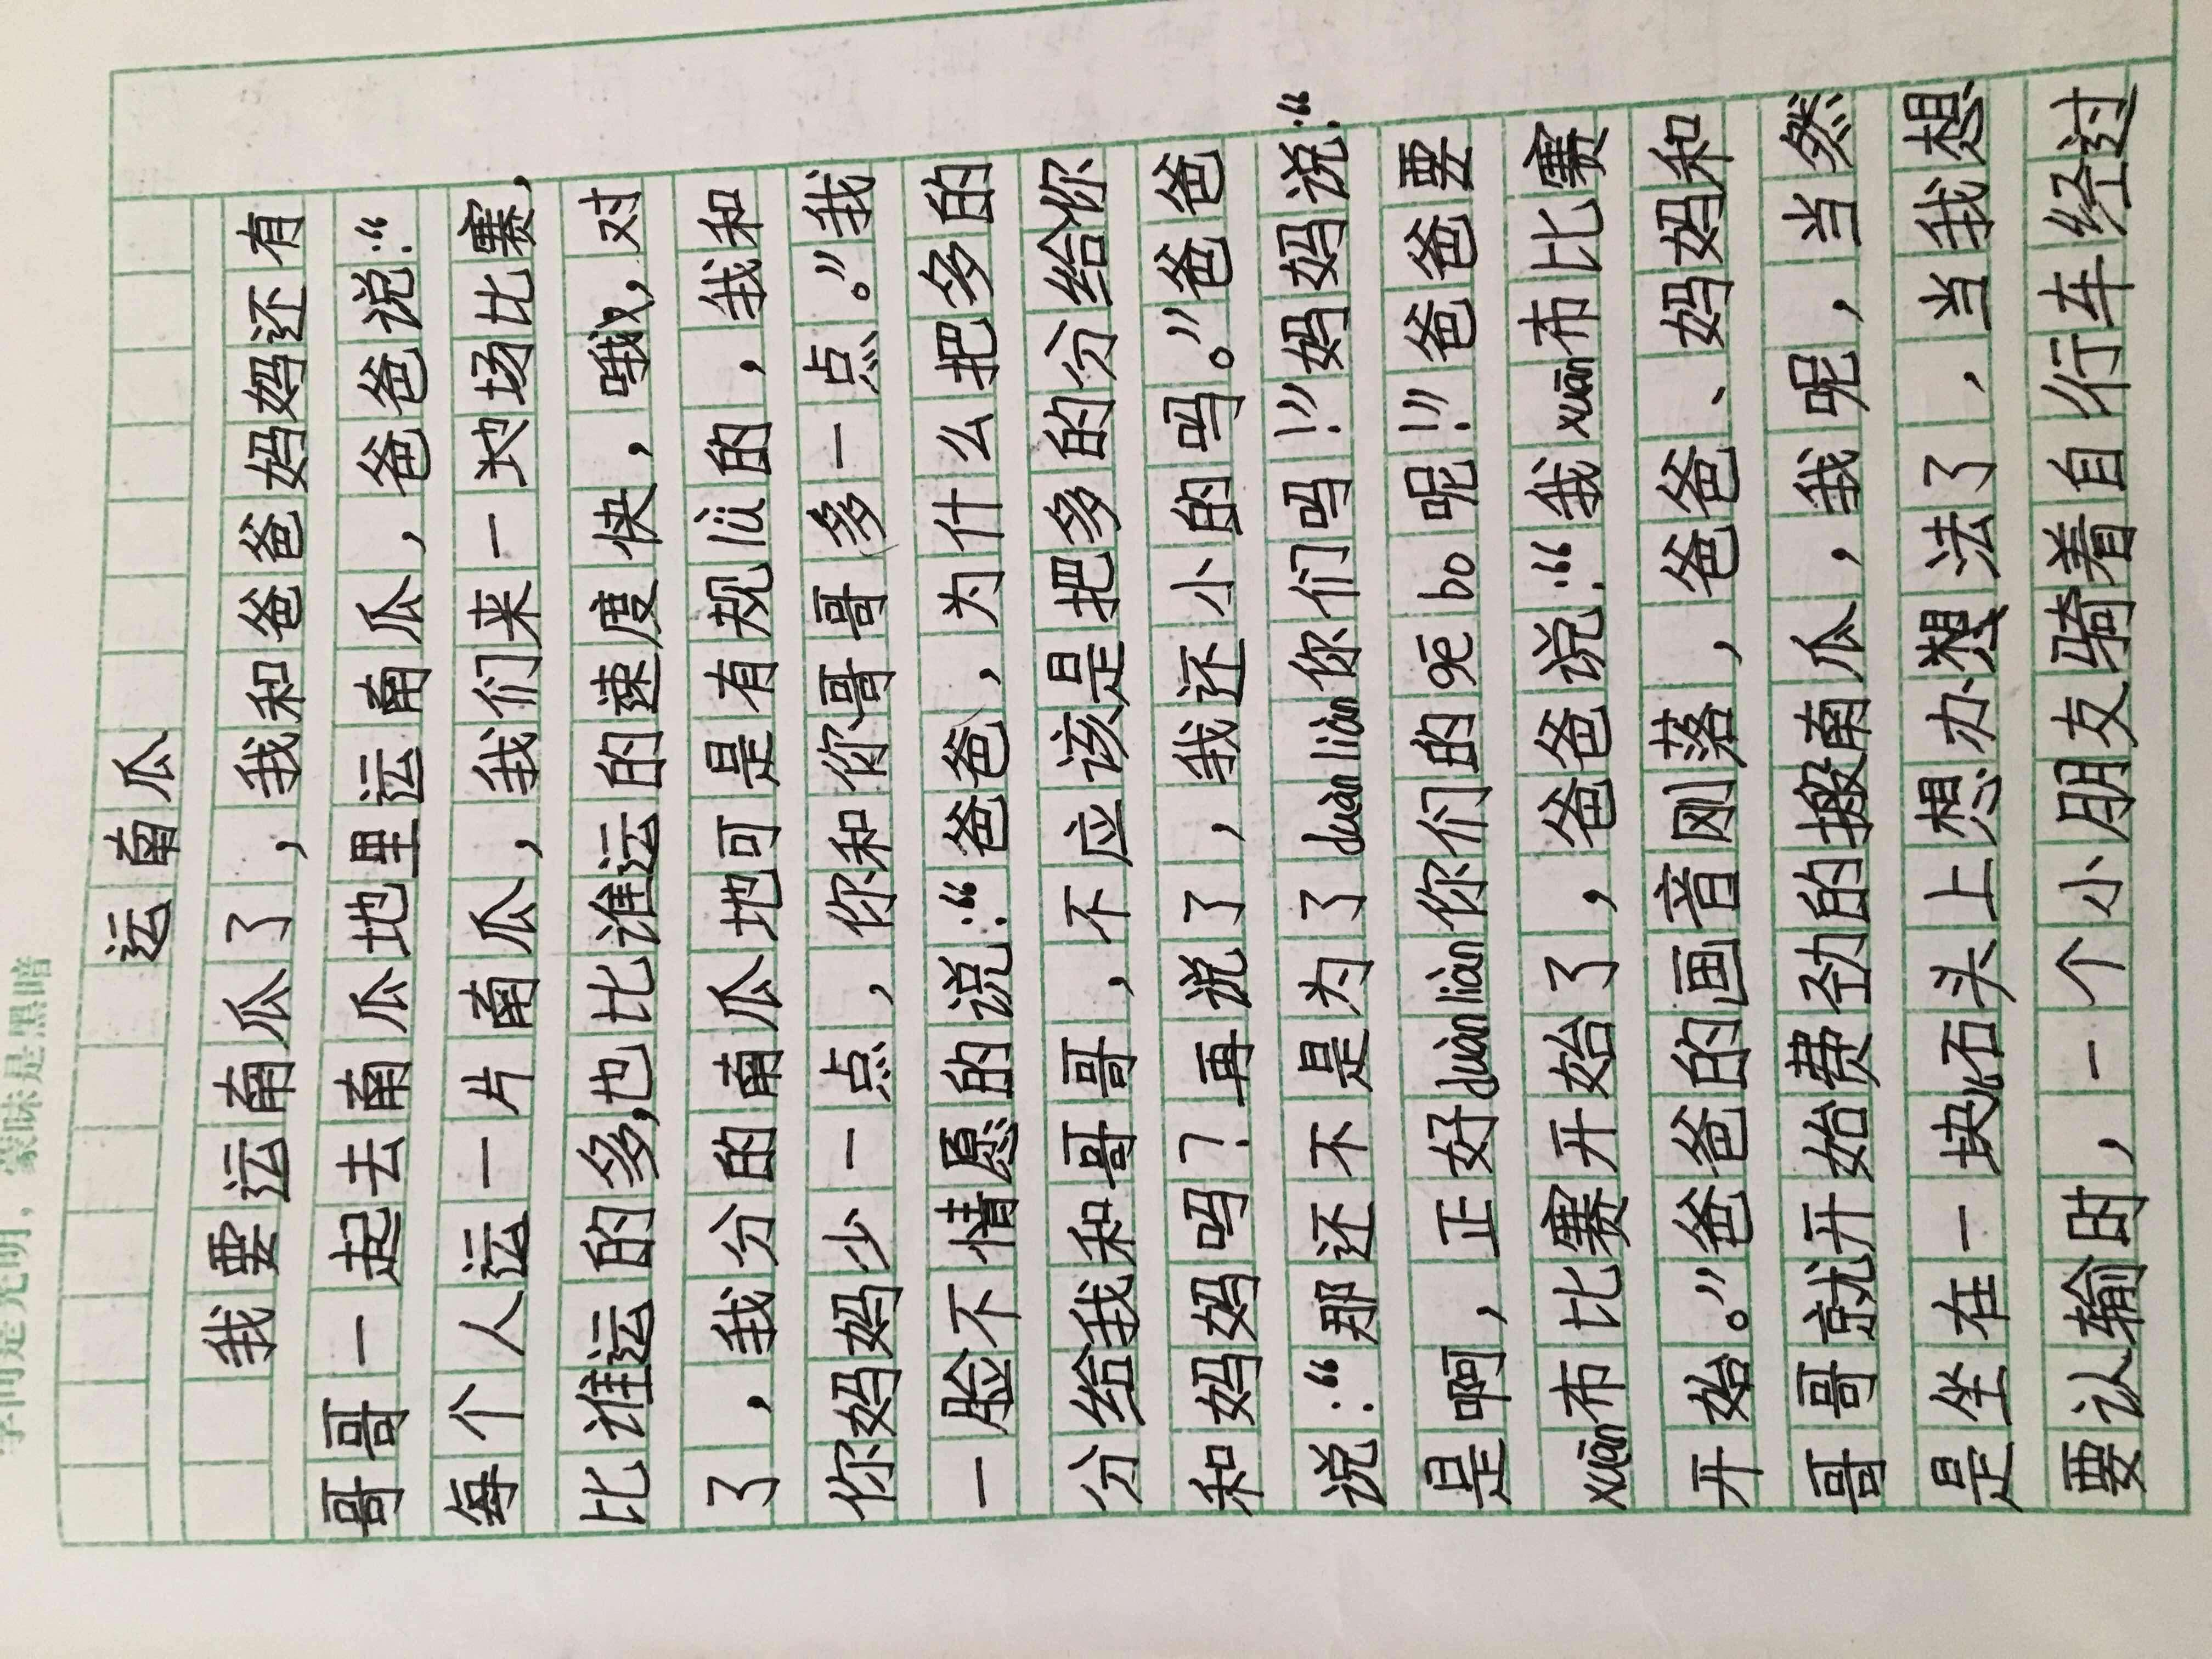 学问是光明，蒙昧是黑暗
运南瓜
我要运南瓜了，我和爸爸妈妈还有
哥哥一起去南瓜地里运南瓜，爸爸说：“
每个人运一片南瓜，我们来一场比赛，
比谁运的多，也比谁运的速度快，哦，对
了，我分的南瓜地可是有规lǜ的，我和
你妈妈少一点，你和你哥哥多一点。”我
一脸不情愿的说：“爸爸，为什么把多的
分给我和哥哥，不应该是把多的分给你
和妈妈吗？再说了，我还小的吗。”爸爸
说：“那还不是为了duàn liàn你们吗！”妈妈说：“
是啊，正好duàn liàn你们的gē bo呢！”爸爸要
xuān布比赛开始了，爸爸说：“我xuān布比赛
开始。”爸爸的画音刚落，爸爸、妈妈和
哥哥就开始费劲的搬南瓜，我呢，当然
是坐在一块石头上想办想法了，当我想
要认输时，一个小朋友骑着自行车经过